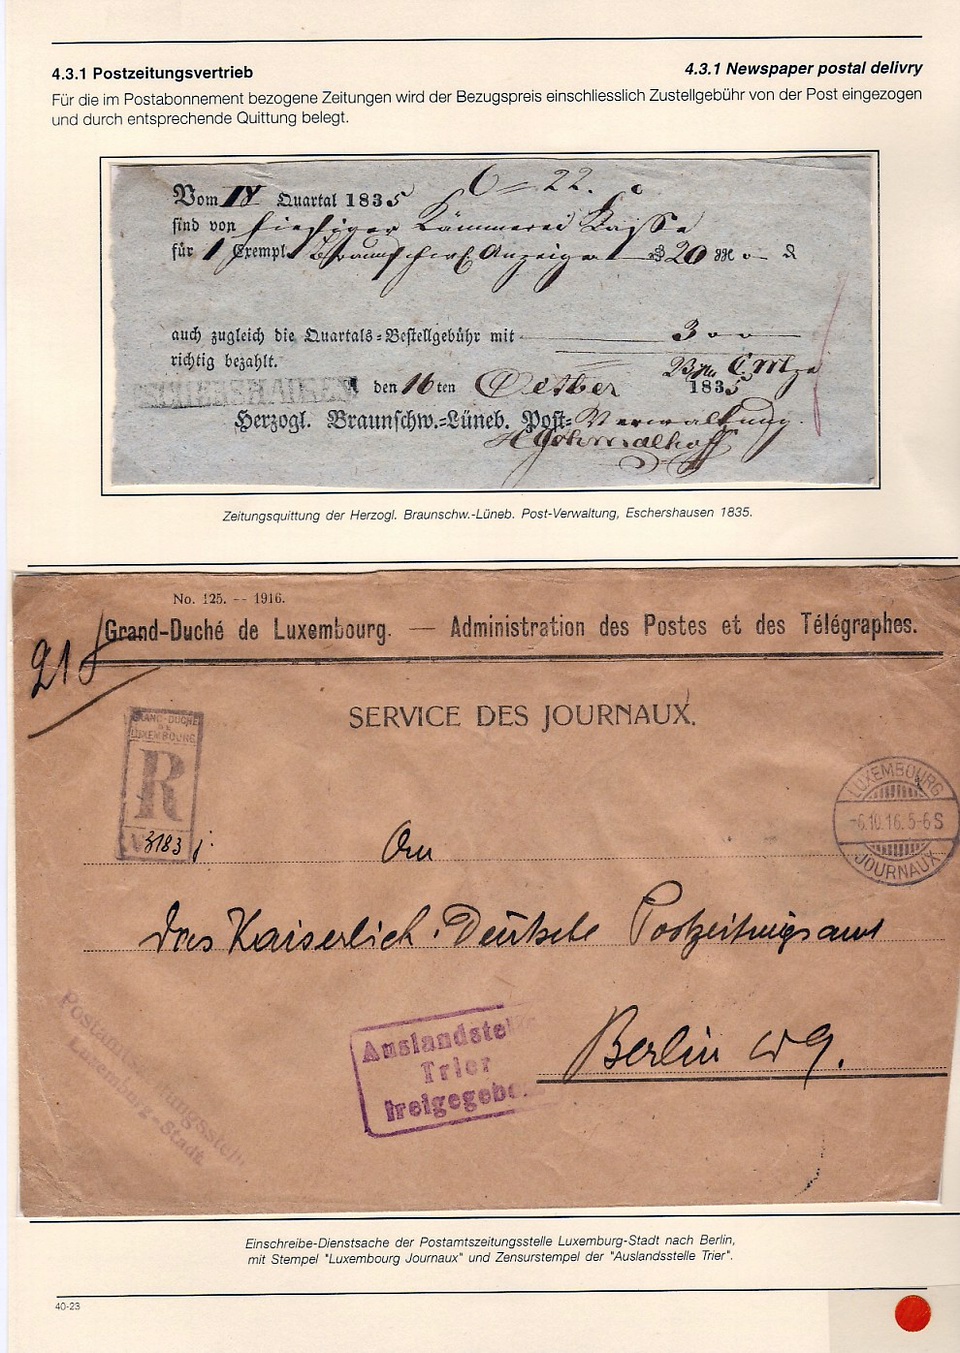 4.3.1 Postzeitungsvertrieb
4.3.1 Newspaper postal delivry
Für die im Postabonnement bezogene Zeitungen wird der Bezugspreis einschliesslich Zustellgebühr von der Post eingezogen
und durch entsprechende Quittung belegt.
22.
Vom 18 Quartal 1835
sind von hiesiger Kämmerei Kasse
für 1 Exempl. Braunschw. Anzeigen 20
auch zugleich die Quartals-Bestellgebühr mit 3
richtig bezahlt.
ESCHERSHAUSEN den 16ten October 1835
Herzogl. Braunschw.-Lüneb. Post-Verwaltung.
Zeitungsquittung der Herzogl. Braunschw.-Lüneb. Post-Verwaltung, Eschershausen 1835.
No. 125. -- 1916.
Grand-Duché de Luxembourg. — Administration des Postes et des Télégraphes.
218
SERVICE DES JOURNAUX.
GRAND-DUCHÉ
DE
LUXEMBOURG
R
3183
LUXEMBOURG
-6.10.16.5-6S
JOURNAUX
An
das Kaiserlich Deutsche Postzeitungsamt
Berlin W 9.
Auslandstelle
Trier
freigegeben
Luxemburg-Stadt
Einschreibe-Dienstsache der Postamtszeitungsstelle Luxemburg-Stadt nach Berlin,
mit Stempel "Luxembourg Journaux" und Zensurstempel der "Auslandsstelle Trier".
40-23